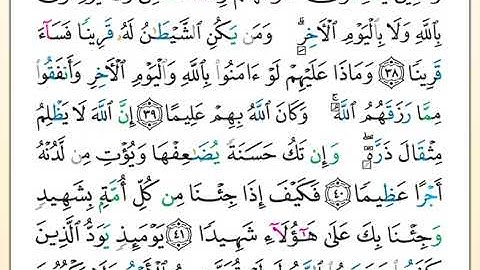 بِٱللَّهِ وَلَا بِٱلْيَوْمِ ٱلْأَخِرِۗ وَمَن يَكُنِ ٱلشَّيْطَـٰنُ لَهُۥ قَرِينًا فَسَآءَ
قَرِينًا ٣٨ وَمَاذَا عَلَيْهِمْ لَوْ ءَامَنُوا۟ بِٱللَّهِ وَٱلْيَوْمِ ٱلْأَخِرِ وَأَنفَقُوا۟
مِمَّا رَزَقَهُمُ ٱللَّهُۚ وَكَانَ ٱللَّهُ بِهِمْ عَلِيمًا ٣٩ إِنَّ ٱللَّهَ لَا يَظْلِمُ
مِثْقَالَ ذَرَّةٍۖ وَإِن تَكُ حَسَنَةً يُضَـٰعِفْهَا وَيُؤْتِ مِن لَّدُنْهُ
أَجْرًا عَظِيمًا ٤٠ فَكَيْفَ إِذَا جِئْنَا مِن كُلِّ أُمَّةٍۭ بِشَهِيدٍ
وَجِئْنَا بِكَ عَلَىٰ هَـٰٓؤُلَآءِ شَهِيدًا ٤١ يَوْمَئِذٍ يَوَدُّ ٱلَّذِينَ